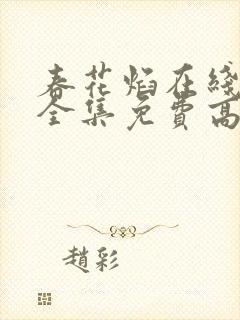 春花焰在綫
全集免費高
趙彩